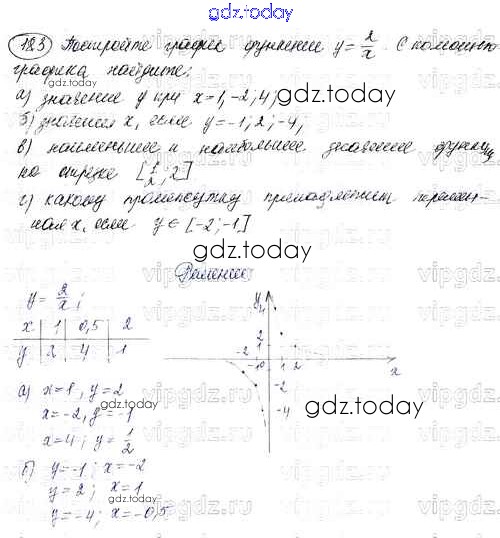 gdz.today
183 Постройте график функции y = 2/x. С помощью
графика найдите:
а) значение y при x=1, -2; 4;
б) значения x, если y=-1; 2; -4,
в) наименьшее и наибольшее значение функции
на отрезке [1/2; 2]
г) какому промежутку принадлежит перемен-
ная x, если y∈[-2;-1]
gdz.today
gdz.today
Решение
y = 2/x;
x 1 0,5 2
y 2 4 1
а) x=1, y=2
x=-2, y=-1
x=4; y=1/2
б) y=-1; x=-2
y=2; x=1
y=-4; x=-0,5
gdz.today
gdz.today
gdz.today
y
4
2
1
-2 -1 0 1 2 x
-2
-4
vipgdz vipgdz